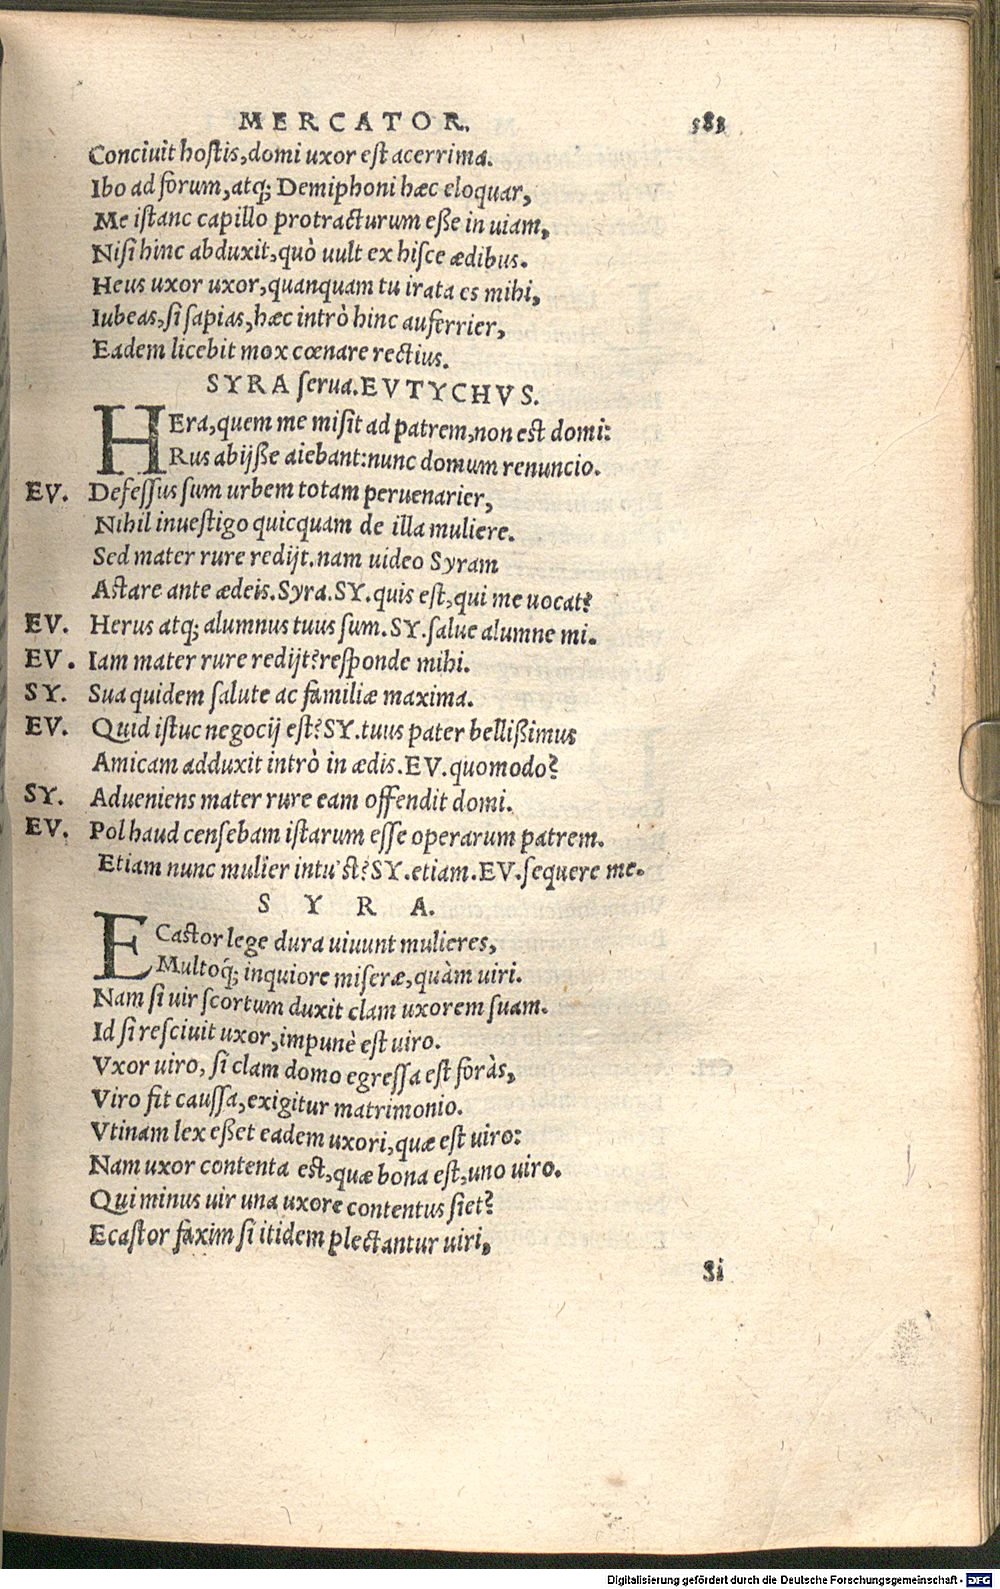 MERCATOR. 583
Conciuit hostis, domi uxor est acerrima.
Ibo ad forum, atq; Demiphoni hæc eloquar,
Me istanc capillo protracturum eße in uiam,
Nisi hinc abduxit, quò uult ex hisce ædibus.
Heus uxor uxor, quanquam tu irata es mihi,
Iubeas, si sapias, hæc intrò hinc auferrier,
Eadem licebit mox cœnare rectius.
SYRA serua. EVTYCHVS.
HEra, quem me misit ad patrem, non est domi:
Rus abijße aiebant: nunc domum renuncio.
EV. Defessus sum urbem totam peruenarier,
Nihil inuestigo quicquam de illa muliere.
Sed mater rure redijt. nam uideo Syram
Astare ante ædeis. Syra. SY. quis est, qui me uocat?
EV. Herus atq; alumnus tuus sum. SY. salue alumne mi.
EV. Iam mater rure redijt? responde mihi.
SY. Sua quidem salute ac familiæ maxima.
EV. Quid istuc negocij est? SY. tuus pater bellißimus
Amicam adduxit intrò in ædis. EV. quomodo?
SY. Adueniens mater rure eam offendit domi.
EV. Pol haud censebam istarum esse operarum patrem.
Etiam nunc mulier intu'st? SY. etiam. EV. sequere me.
SYRA.
ECastor lege dura uiuunt mulieres,
Multoq́; inquiore miseræ, quàm uiri.
Nam si uir scortum duxit clam uxorem suam.
Id si resciuit uxor, impunè est uiro.
Vxor uiro, si clam domo egressa est foràs,
Viro fit caussa, exigitur matrimonio.
Vtinam lex eßet eadem uxori, quæ est uiro:
Nam uxor contenta est, quæ bona est, uno uiro.
Qui minus uir una uxore contentus siet?
Ecastor faxim si itidem plectantur uiri,
Si
Digitalisierung gefördert durch die Deutsche Forschungsgemeinschaft - DFG